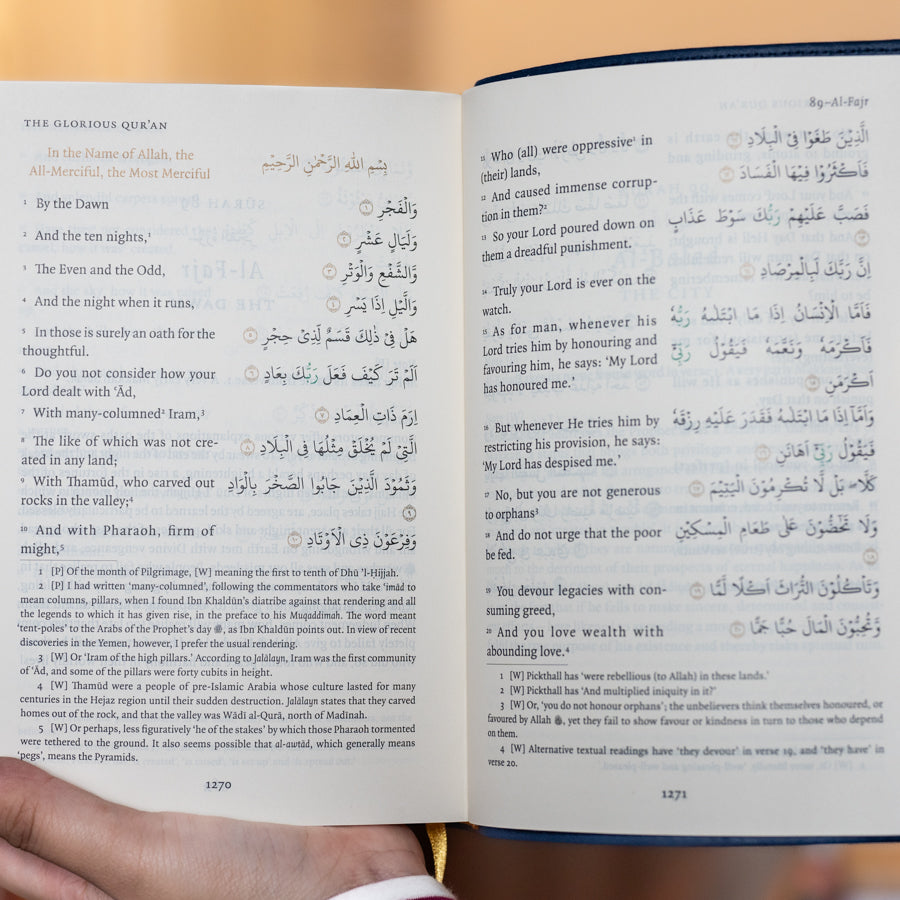 THE GLORIOUS QUR'AN
In the Name of Allah, the
All-Merciful, the Most Merciful
بِسْمِ اللهِ الرَّحْمٰنِ الرَّحِيْمِ
1 By the Dawn
وَالْفَجْرِ ۝١
2 And the ten nights,1
وَلَيَالٍ عَشْرٍ ۝٢
3 The Even and the Odd,
وَّالشَّفْعِ وَالْوَتْرِ ۝٣
4 And the night when it runs,
وَالَّيْلِ اِذَا يَسْرِ ۝٤
5 In those is surely an oath for the
thoughtful.
هَلْ فِيْ ذٰلِكَ قَسَمٌ لِّذِيْ حِجْرٍ ۝٥
6 Do you not consider how your
Lord dealt with ‘Ād,
اَلَمْ تَرَ كَيْفَ فَعَلَ رَبُّكَ بِعَادٍ ۝٦
7 With many-columned2 Iram,3
اِرَمَ ذَاتِ الْعِمَادِ ۝٧
8 The like of which was not cre-
ated in any land;
الَّتِيْ لَمْ يُخْلَقْ مِثْلُهَا فِي الْبِلَادِ ۝٨
9 With Thamūd, who carved out
rocks in the valley;4
وَثَمُوْدَ الَّذِيْنَ جَابُوا الصَّخْرَ بِالْوَادِ
۝٩
10 And with Pharaoh, firm of
might,5
وَفِرْعَوْنَ ذِى الْاَوْتَادِ ۝١٠
1 [P] Of the month of Pilgrimage, [W] meaning the first to tenth of Dhu ’l-Ḥijjah.
2 [P] I had written ‘many-columned’, following the commentators who take ‘imād to
mean columns, pillars, when I found Ibn Khaldūn’s diatribe against that rendering and all
the legends to which it has given rise, in the preface to his Muqaddimah. The word meant
‘tent-poles’ to the Arabs of the Prophet’s day ﷺ, as Ibn Khaldūn points out. In view of recent
discoveries in the Yemen, however, I prefer the usual rendering.
3 [W] Or ‘Iram of the high pillars.’ According to Jalālayn, Iram was the first community
of ‘Ād, and some of the pillars were forty cubits in height.
4 [W] Thamūd were a people of pre-Islamic Arabia whose culture lasted for many
centuries in the Hejaz region until their sudden destruction. Jalālayn states that they carved
homes out of the rock, and that the valley was Wādī al-Qurā, north of Madīnah.
5 [W] Or perhaps, less figuratively ‘he of the stakes’ by which those Pharaoh tormented
were tethered to the ground. It also seems possible that al-awtād, which generally means
‘pegs’, means the Pyramids.
1270
89–Al-Fajr
11 Who (all) were oppressive1 in
(their) lands,
الَّذِيْنَ طَغَوْا فِى الْبِلَادِ ۝١١
12 And caused immense corrup-
tion in them?2
فَاَكْثَرُوْا فِيْهَا الْفَسَادَ ۝١٢
13 So your Lord poured down on
them a dreadful punishment.
فَصَبَّ عَلَيْهِمْ رَبُّكَ سَوْطَ عَذَابٍ
۝١٣
14 Truly your Lord is ever on the
watch.
اِنَّ رَبَّكَ لَبِالْمِرْصَادِ ۝١٤
15 As for man, whenever his
Lord tries him by honouring and
favouring him, he says: ‘My Lord
has honoured me.’
فَاَمَّا الْاِنْسَانُ اِذَا مَا ابْتَلٰىهُ رَبُّهٗ
فَاَكْرَمَهٗ وَنَعَّمَهٗ فَيَقُوْلُ رَبِّيْٓ
اَكْرَمَنِ ۝١٥
16 But whenever He tries him by
restricting his provision, he says:
‘My Lord has despised me.’
وَاَمَّآ اِذَا مَا ابْتَلٰىهُ فَقَدَرَ عَلَيْهِ رِزْقَهٗ
فَيَقُوْلُ رَبِّيْٓ اَهَانَنِ ۝١٦
17 No, but you are not generous
to orphans3
كَلَّا بَلْ لَّا تُكْرِمُوْنَ الْيَتِيْمَ ۝١٧
18 And do not urge that the poor
be fed.
وَلَا تَحٰٓضُّوْنَ عَلٰى طَعَامِ الْمِسْكِيْنِ
۝١٨
19 You devour legacies with con-
suming greed,
وَتَاْكُلُوْنَ التُّرَاثَ اَكْلًا لَّمًّا ۝١٩
20 And you love wealth with
abounding love.4
وَّتُحِبُّوْنَ الْمَالَ حُبًّا جَمًّا ۝٢٠
1 [W] Pickthall has ‘were rebellious (to Allah) in these lands.’
2 [W] Pickthall has ‘And multiplied iniquity in it?’
3 [W] Or, ‘you do not honour orphans’; the unbelievers think themselves honoured, or
favoured by Allah ﷻ, yet they fail to show favour or kindness in turn to those who depend
on them.
4 [W] Alternative textual readings have ‘they devour’ in verse 19, and ‘they have’ in
verse 20.
1271